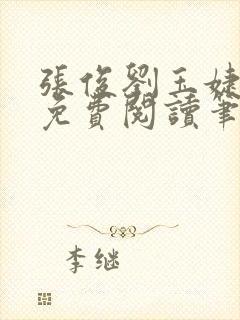 張俊劉玉婕
免費閱讀筆
李继